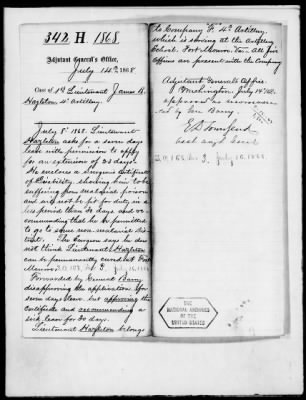 342 H 1868
Adjutant General's Office,
July 14th 1868
Case of 1st Lieutenant James B.
Hazelton 4th Artillery
July 8th 1868. Lieutenant
Hazelton asks for a seven days
leave with permission to apply
for an extension of 23 days.
He encloses a Surgeon's Certificate
of Disability, showing him to be
suffering from malarial poison
and will not be fit for duty in a
less period than 30 days and re-
commending that he be permitted
to go to some non-malarial dis-
trict. The Surgeon says he does
not think Lieutenant Hazelton
can be permanently cured at Fort
Monroe.
Forwarded by General Barry
disapproving the application for
seven days leave but approving the
Certificate and recommending a
sick leave for 30 days.
Lieutenant Hazelton belongs
to Company "F" 4th Artillery,
which is serving at the Artillery
School, Fort Monroe, Va. All five
Officers are present with the Company
Adjutant General's Office
Washington, July 14th 68.
approved as recommen-
ded by Gen Barry
E D Townsend
Asst Adjt Genl
THE
NATIONAL ARCHIVES
OF THE
UNITED STATES